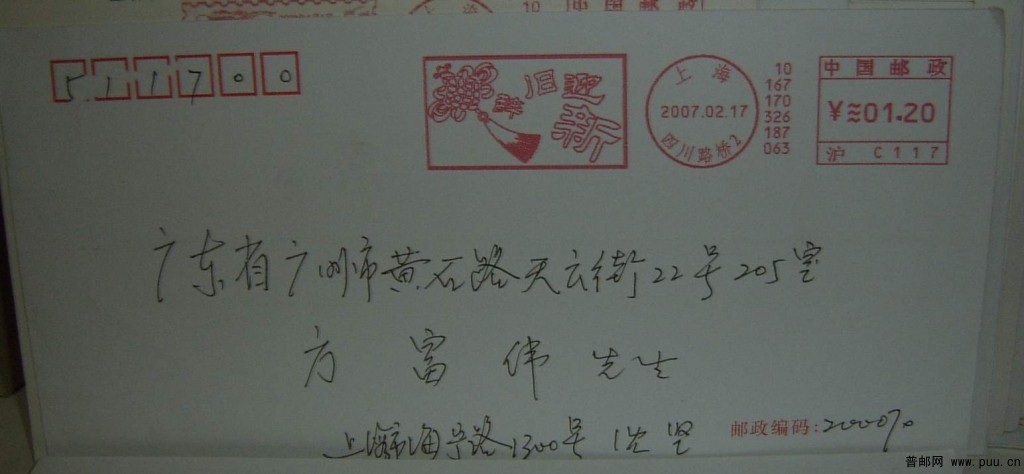 中国邮政
511700
辞旧迎新
上海
2007.02.17
四川路桥2
10
167
170
326
187
063
中国邮政
¥≈01.20
沪 C117
广东省广州市黄石路天云街22号205室
方富伟先生
上海市海宁路1300号
邮政编码:200070
普邮网 www.puu.cn